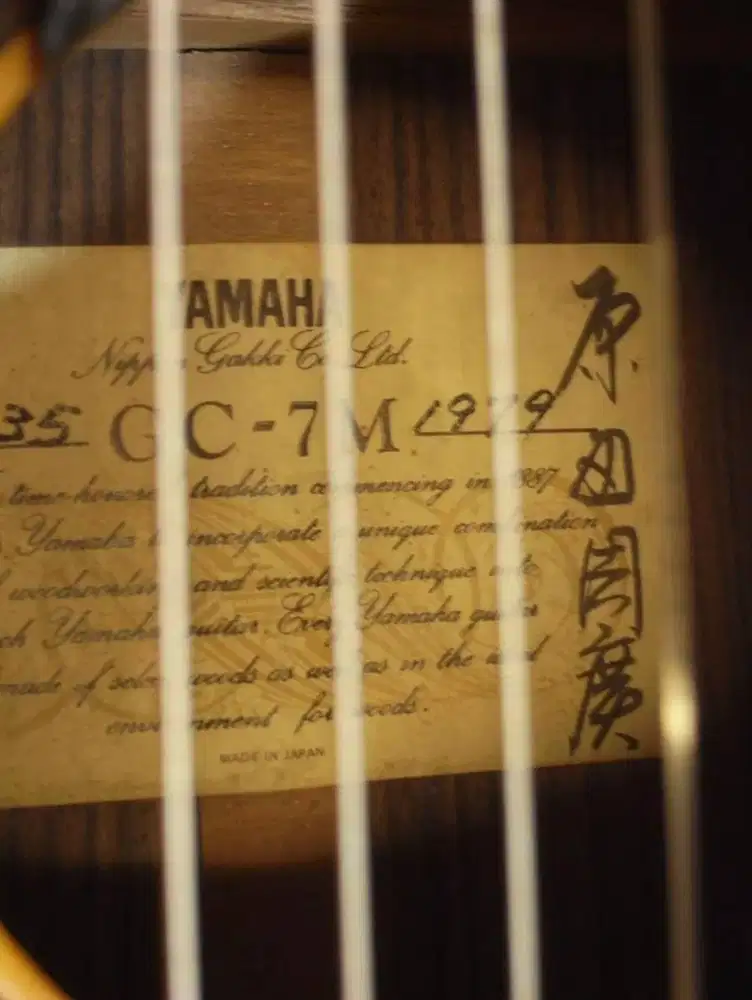 YAMAHA
Nippon Gakki Co. Ltd.
35 GC-7M 1979
time-honored tradition commencing in 1887
Yamaha incorporate unique combination
woodworking and scientific technique into
Yamaha guitar. Every Yamaha guitar
made of select woods as well as in the ideal
environment for woods.
MADE IN JAPAN
原田周廣